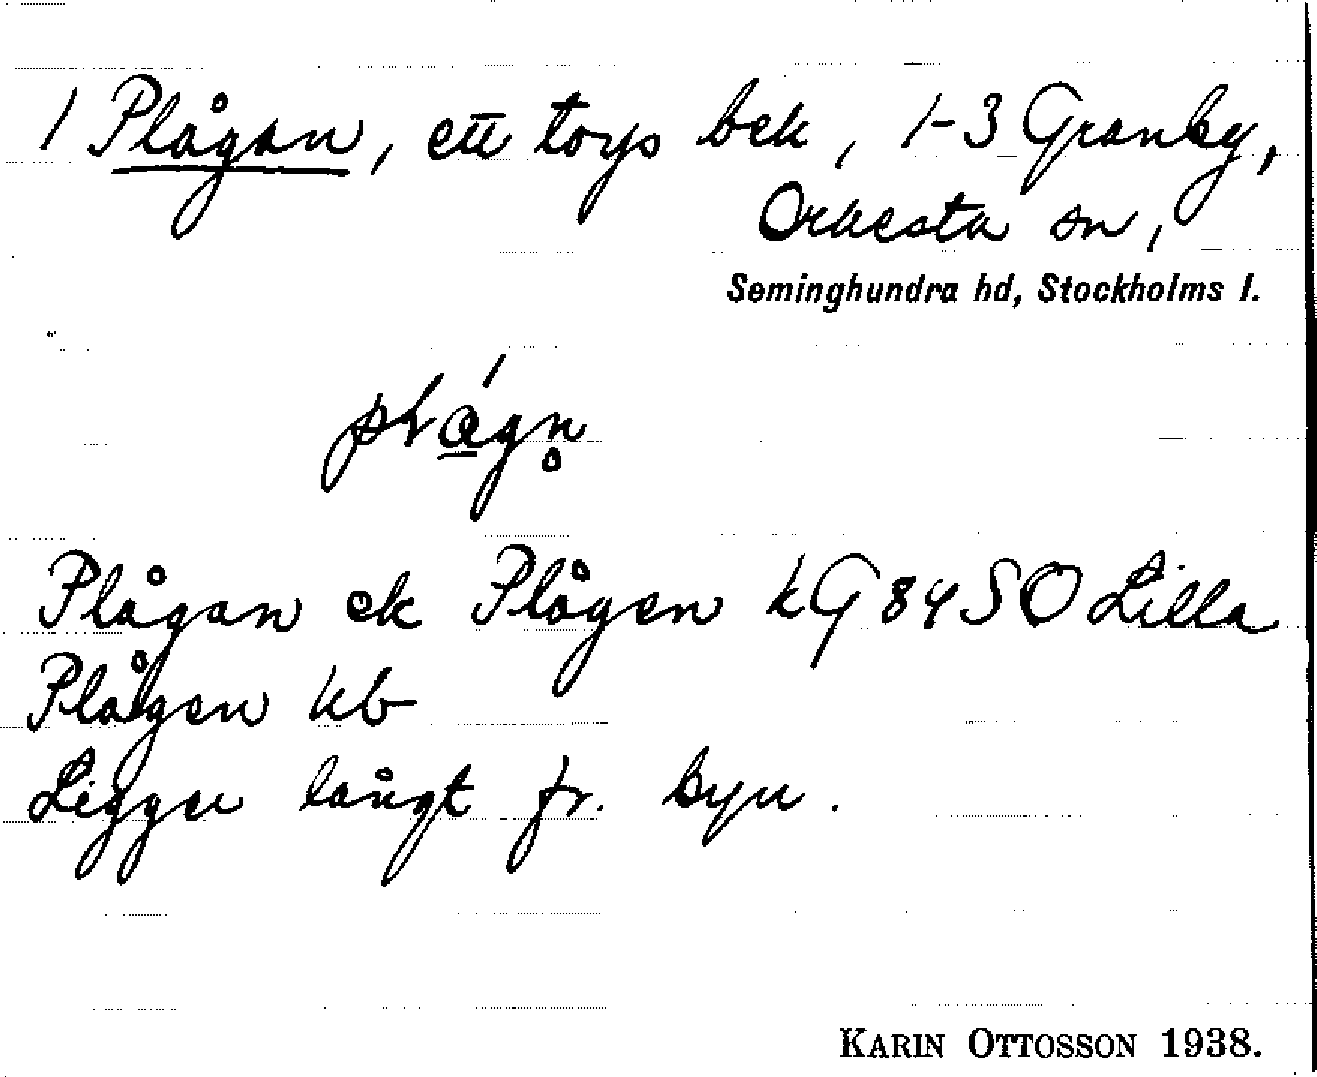 1 Plågan, ett torps bek, 1-3 Granby,
Orkesta sn,
Seminghundra hd, Stockholms l.
Plågan ek Plågen kG 84 SO Lilla
Plågen kb
Ligger långt fr. byn.
KARIN OTTOSSON 1938.